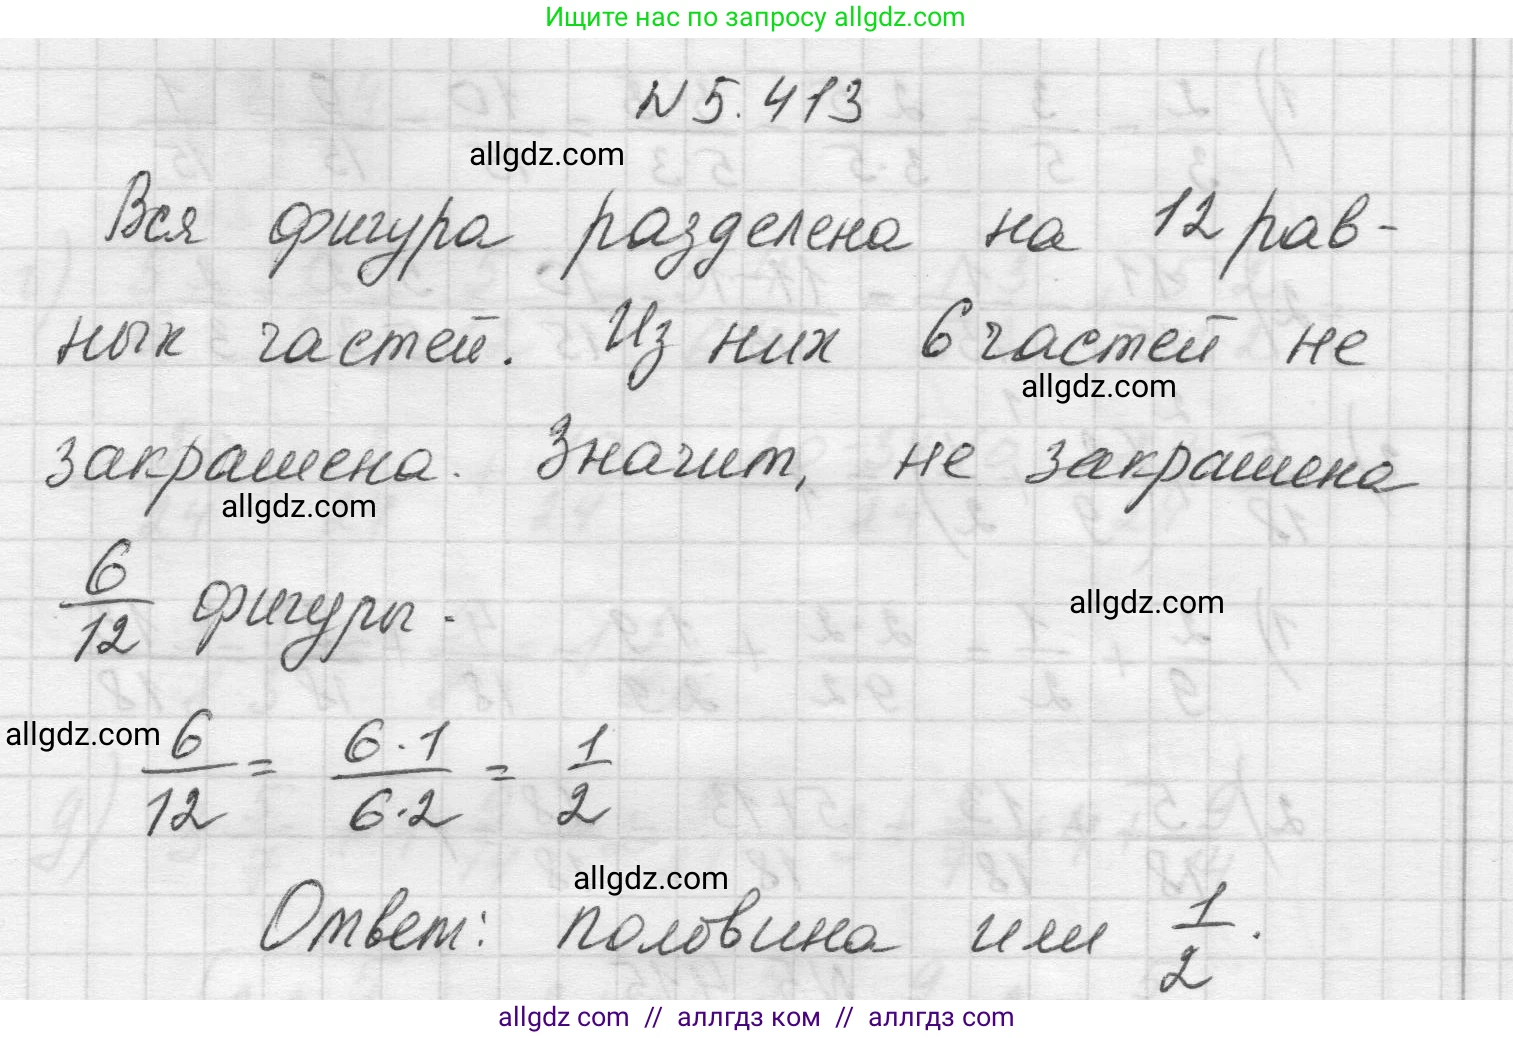 Ищите нас по запросу allgdz.com
N 5.413
allgdz.com
Вся фигура разделена на 12 рав-
ных частей. Из них 6 частей не
allgdz.com
закрашена. Значит, не закрашена
allgdz.com
6/12 фигуры.
allgdz.com
allgdz.com
6/12 = 6·1/6·2 = 1/2
allgdz.com
Ответ: половина или 1/2.
allgdz com // аллгдз ком // аллгдз com